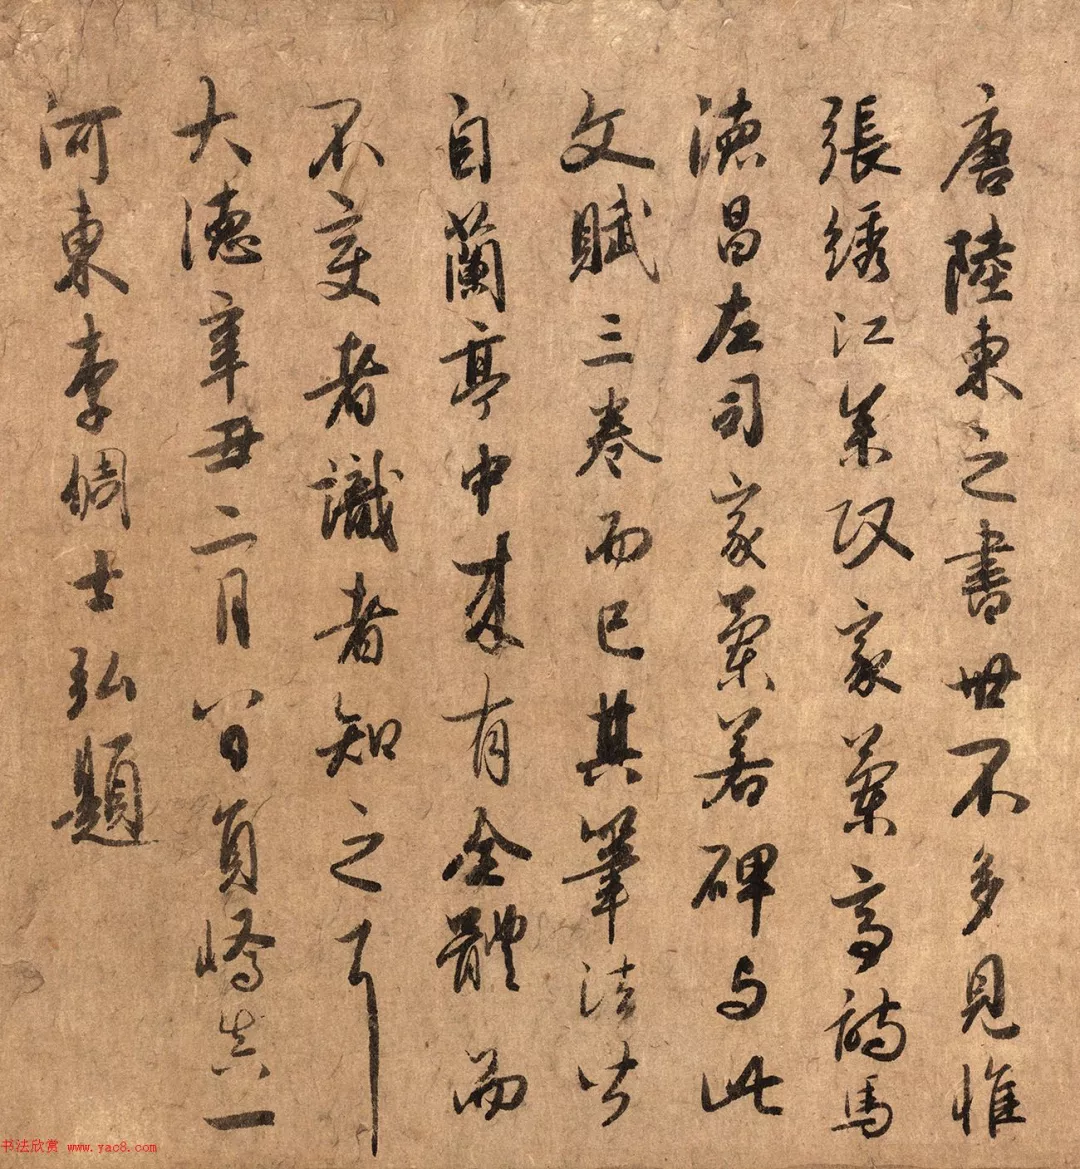 唐陸柬之書世不多見惟
張綉江叅政家蘭亭詩馬
德昌左司家蘭若碑与此
文賦三卷而已其筆法皆
自蘭亭中來有全體而
不變者識者知之耳
大德辛丑二月八日員嶠真一
河東李倜士弘題
书法欣赏 www.yac8.com